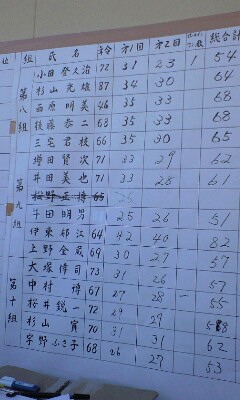 位 組 氏名 年令 才1回 才2回 ホールインワン数 総合計
第八組 小田登久治 72 31 23 1 54
杉山光雄 87 34 30 64
西原明美 46 35 33 68
後藤恭二 68 35 33 68
三宅君枝 66 35 30 65
第九組 増田賢次 71 33 29 62
井田美也 71 33 28 61
松野正博 65 25
牛田明男 25 26 51
伊東郁江 64 42 40 82
上野金蔵 69 30 27 57
第十組 大塚偉司 73 31 26 57
中村博 67 27 28 一 55
桜井鋭一 72 29 29 58
杉山實 70 31 31 62
宇野ふさ子 68 26 27 53